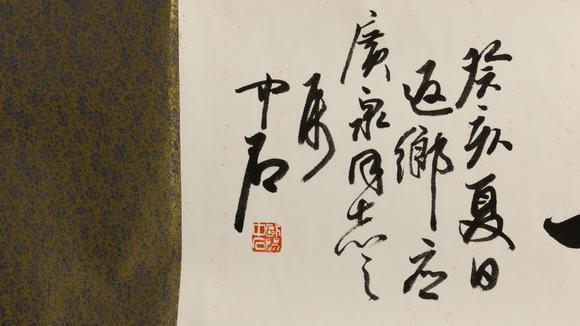 癸亥夏日
返鄉应
廣泉同志之
属
中石
歐陽中石